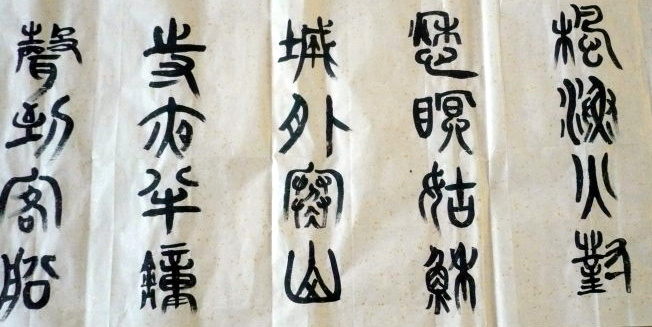 楓漁火對
愁瞑姑穌
城外寒山
寺夜半鐘
聲到客船